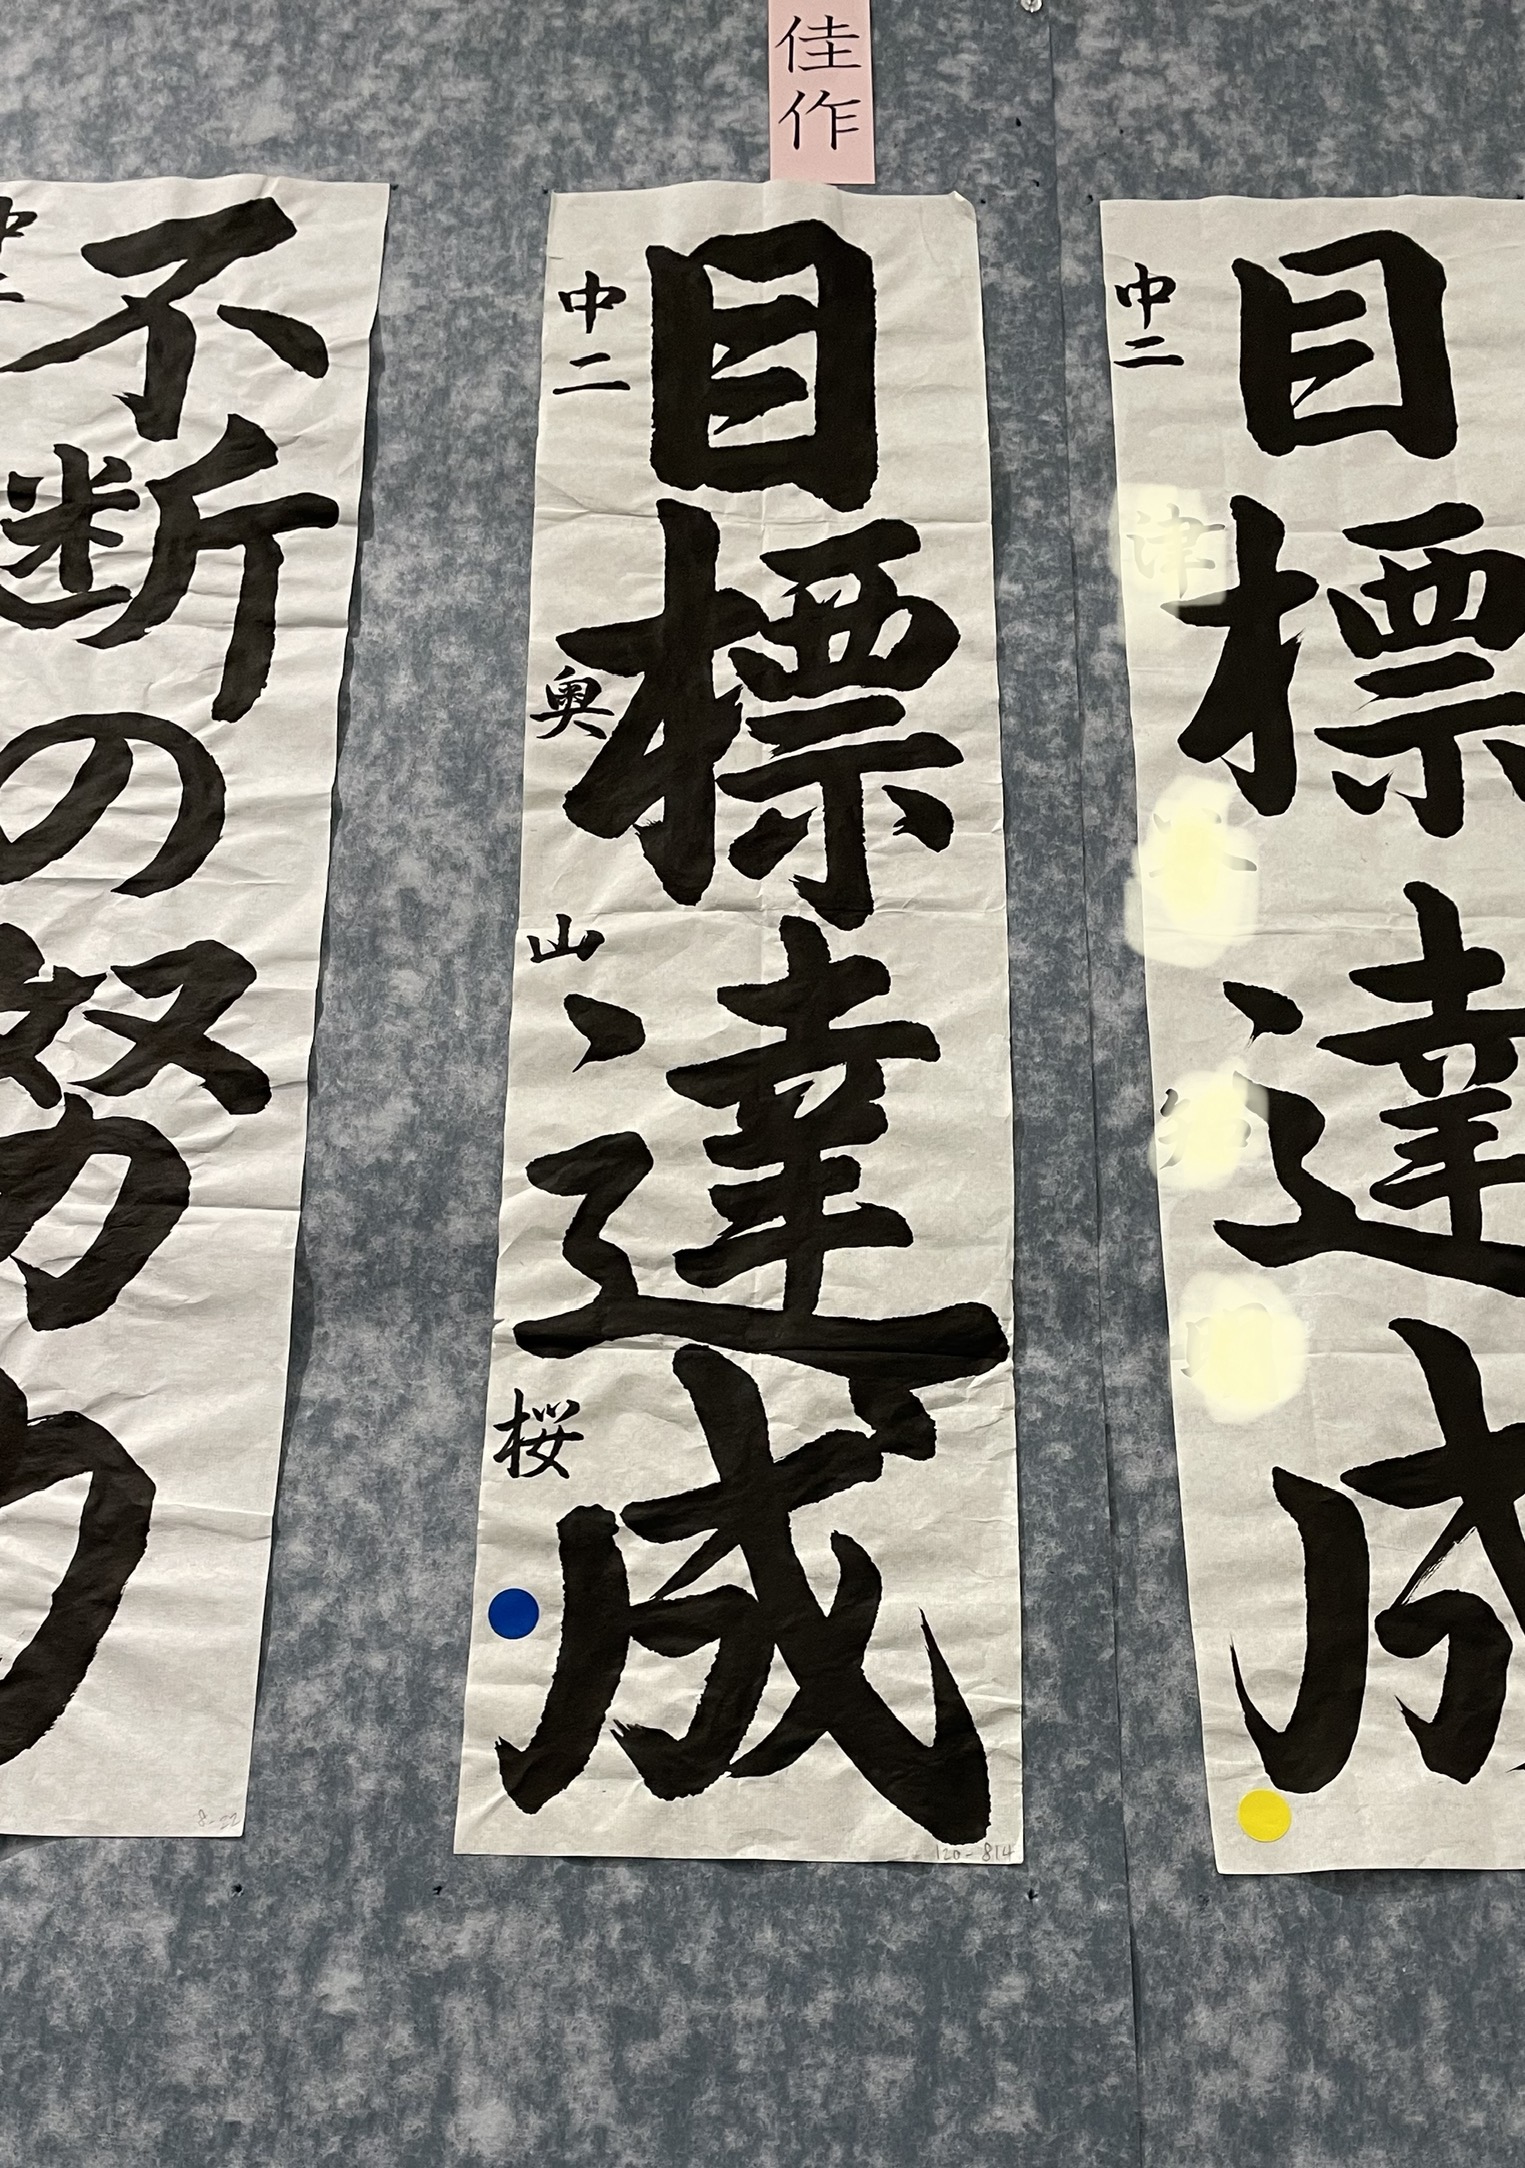 佳作
目標達成
中二
津
目標達成
中二 奥山桜
120-814
不断の努力
8-22